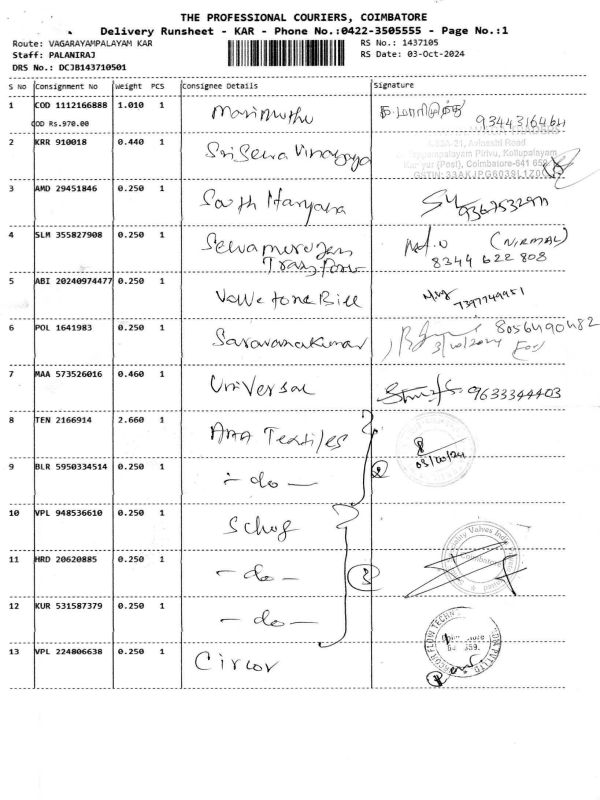 THE PROFESSIONAL COURIERS, COIMBATORE
Delivery Runsheet - KAR - Phone No.:0422-3505555 - Page No.:1
Route: VAGARAYAMPALAYAM KAR RS No.: 1437105
Staff: PALANIRAJ RS Date: 03-Oct-2024
DRS No.: DCJB143710501
S No Consignment No Weight PCS Consignee Details Signature
1 COD 1112166888 1.010 1 Marimuthu 9344316464
COD Rs.970.00
2 KRR 910018 0.440 1 Sri Selva Vinayaga
Avinashi Road
Pirivu, Kollupalayam
(Post), Coimbatore-641
3 AMD 29451846 0.250 1 South Haryana
4 SLM 355827908 0.250 1 (NIRMAL)
8344 622 808
5 ABI 20240974477 0.250 1
6 POL 1641983 0.250 1 Saravanakumar 8056490482
3/10/2024
7 MAA 573526016 0.460 1 Universal 9633344403
8 TEN 2166914 2.660 1 Textiles
03/10/24
9 BLR 5950334514 0.250 1 - do - 2
10 VPL 948536610 0.250 1
11 HRD 20620885 0.250 1 - do - 3
Coimbatore
12 KUR 531587379 0.250 1 - do -
13 VPL 224806638 0.250 1 Circor